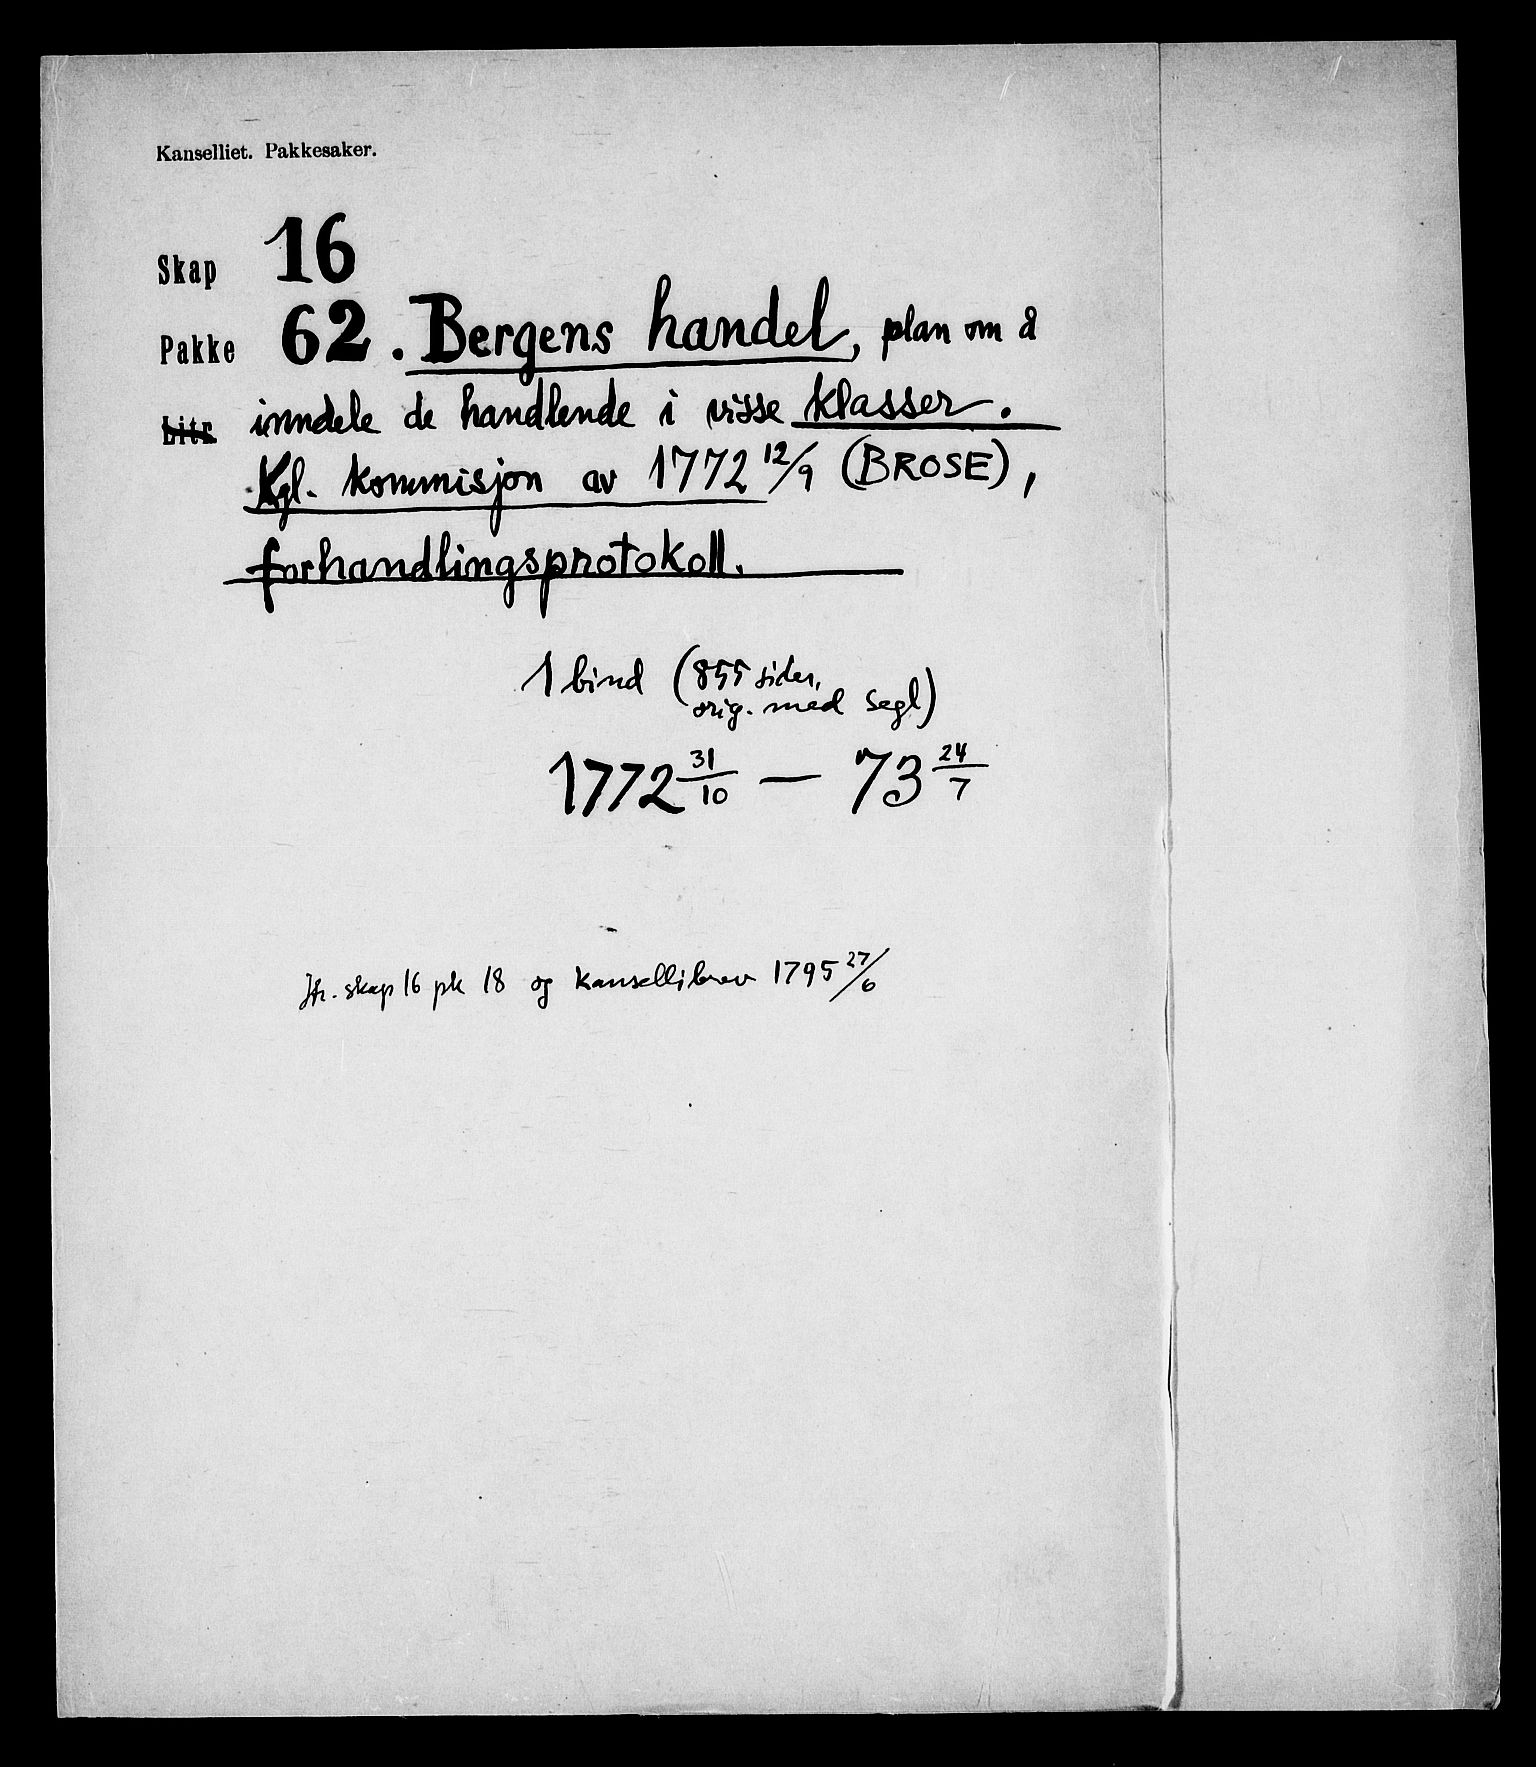 Kanselliet. Pakkesaker.
Skap 16
Pakke 62. Bergens handel, plan om å
Litr inndele de handlende i visse klasser.
Kgl. kommisjon av 1772 12/9 (BROSE),
forhandlingsprotokoll.
1 bind (855 sider,
orig. med segl)
1772 31/10 — 73 24/7
Jfr. skap 16 pk 18 og kansellibrev 1795 27/6